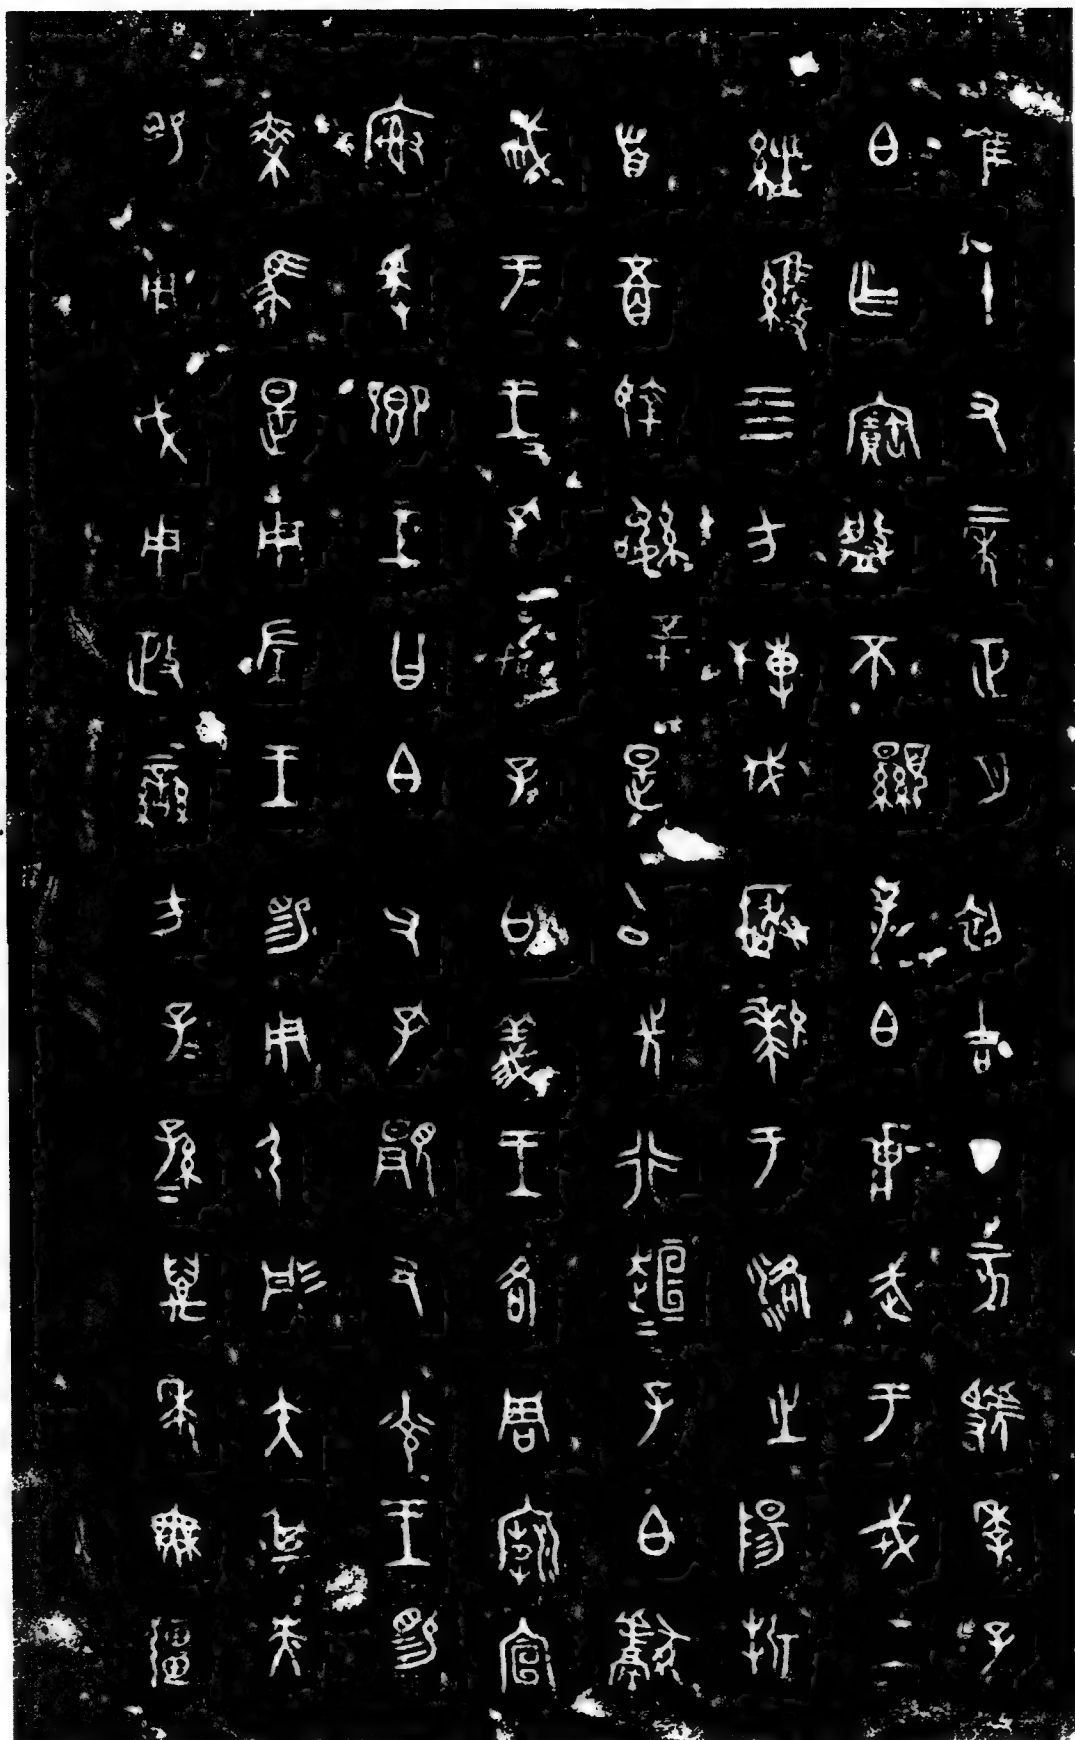 隹十又二年正月初吉丁亥虢季子
白乍寶盤不顯子白壯武于戎工
經維四方搏伐玁狁于洛之陽折
首五百執訊五十是以先行桓桓子白獻
聝于王王孔加子白義王各周廟宣
廟爰鄉王曰白父孔顯又光王賜
乘馬是用左王賜用弓彤矢其央
賜用戉用政蠻方子子孫孫萬年無疆